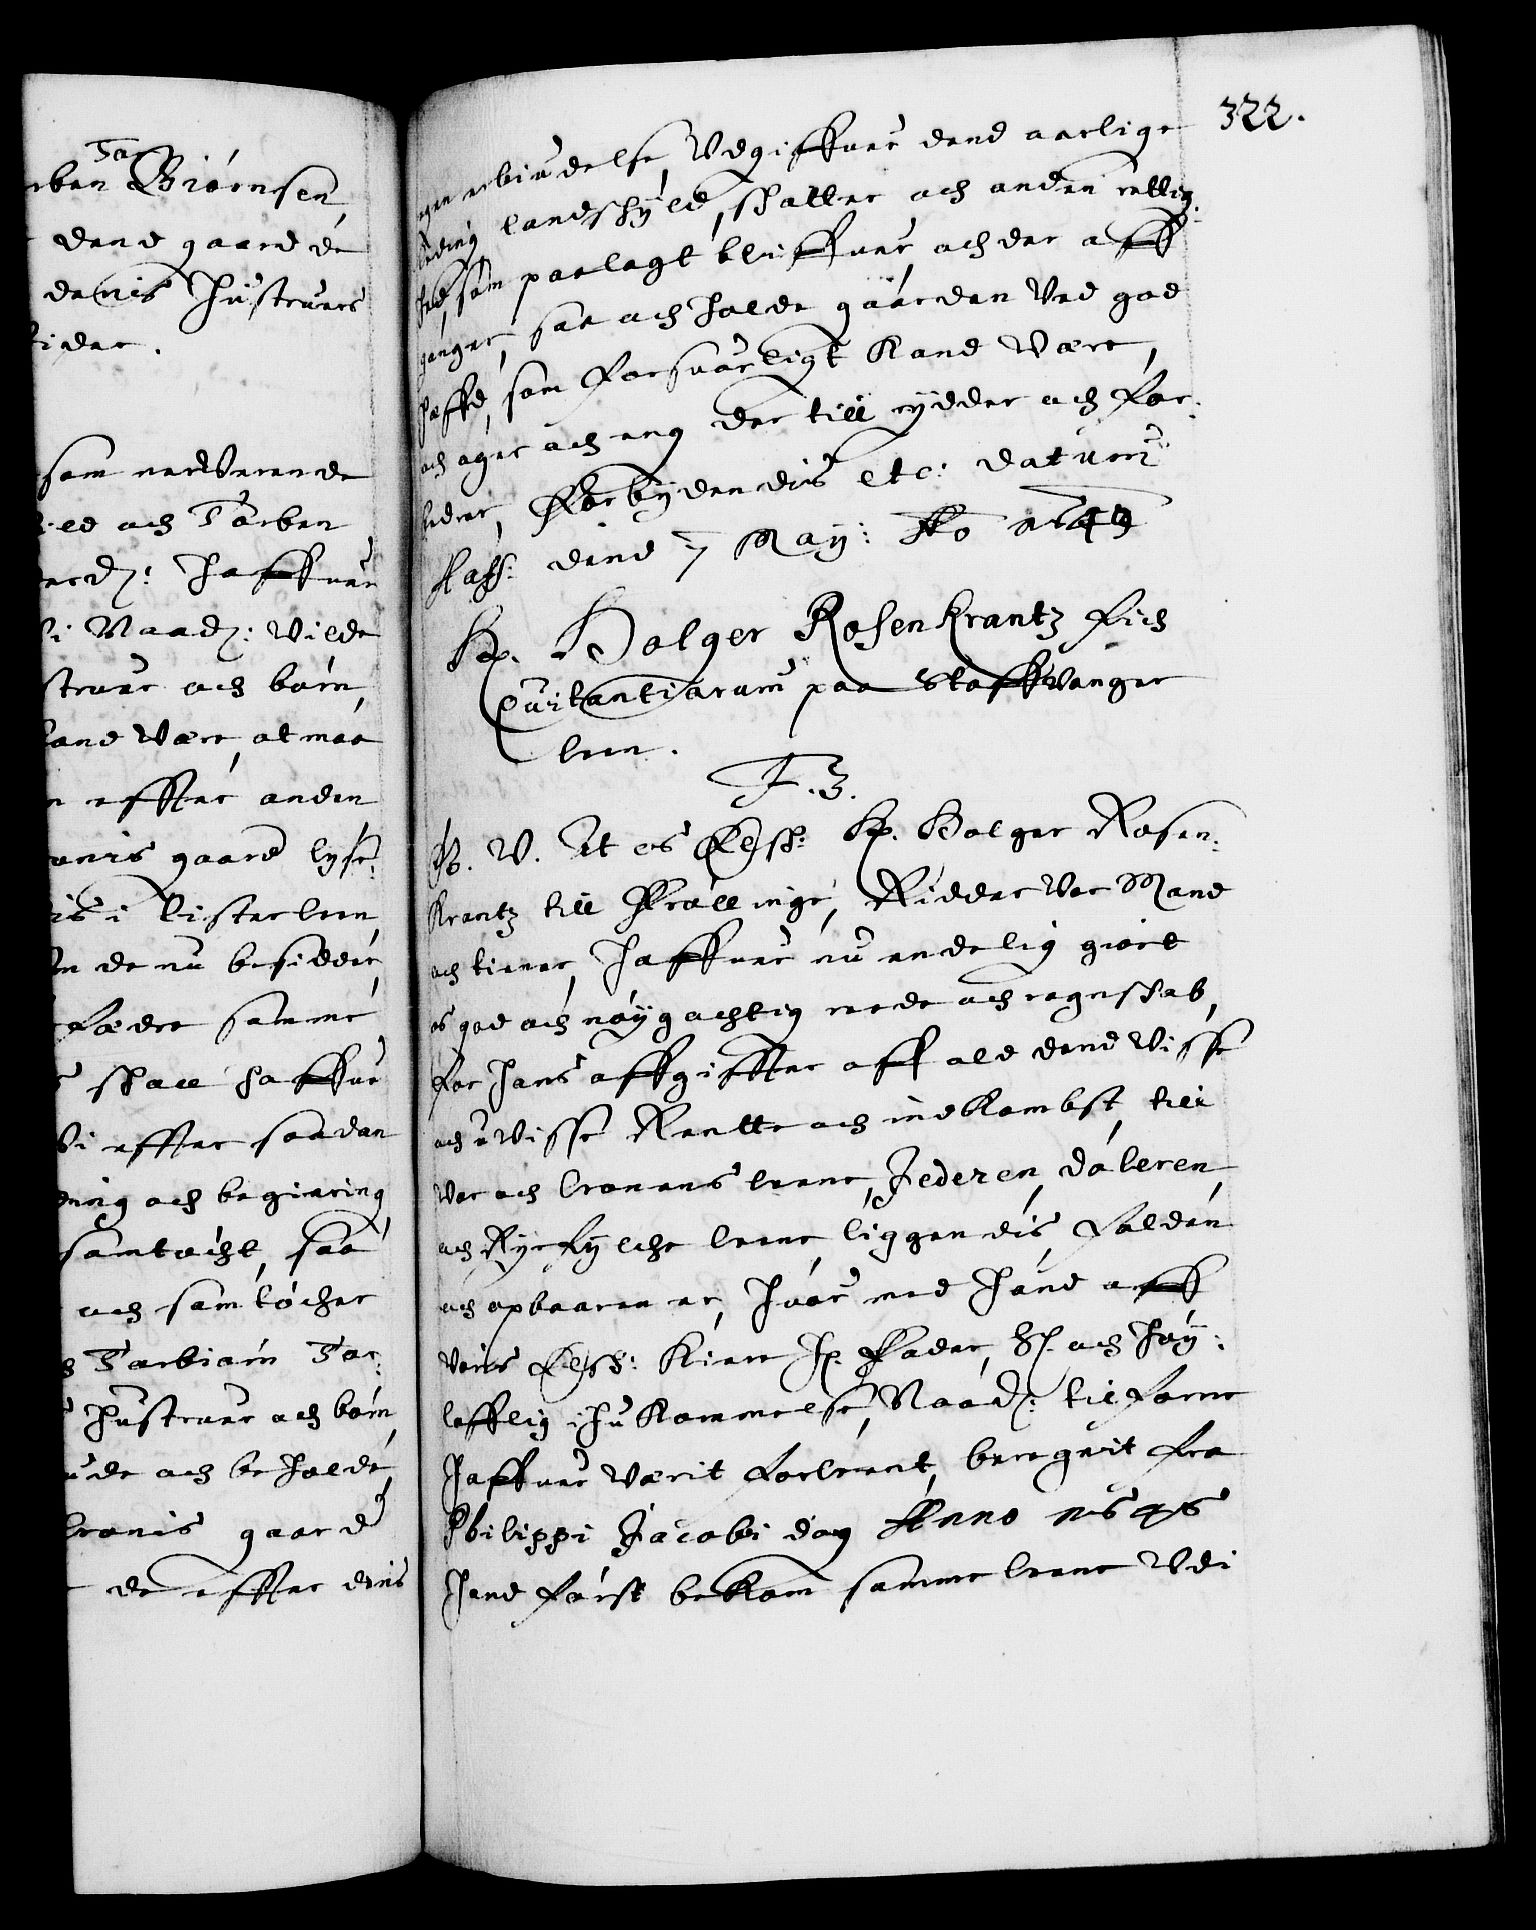 Tor
rben Biörnsen,
dend gaard de
denis hustruers
tider.
som nerverende
och Torben
haffuer
i Naadz: vilde
strue och börn,
kand være, at maa
n effter anden
onis gaard lyse:
is i Listerleen,
de nu besidder,
fædre samme,
schall haffue
Vi effter saadan
ening och begiering
samtöcht, saa
och samtöcher
Torbiörn Tor:
hustrue och börn,
de och beholde,
Cronis gaard
de effter denis
322.
erbiudelse, Udgiffuer dend aarlige
leding landschÿld, schatter och anden rettig:
hed, som paalagt bliffuer, och der aff
ganger, saa och holde gaarden ved god
heffd, som forsuarligt kand være,
och ager och eng der till rÿdder och for:
bedrer, Forbÿdendis etc: datum
Haff: dend 7 Maÿ: Ao 1649
Hr. Holger Rosenkrantz fich
Quitantiarum paa Staffuanger
leen.
F. 3.
G. V. At os Elsch: Hr. Holger Rosen:
Krantz till Frölling, Ridder Vor Mand
och tiener, haffuer nu endelig giort
os god och nöÿgachtig rede och regnschab,
for hans affgiffter aff ald dend visse
och uvisse Rentte och indkombst, till
vor och Cronens leene, Jederen, daleren,
och Rÿefÿlche leene liggendis, falden
och opbaaren er, huor med hand aff
voris Elsch: Kiere hr. Fader, S. och höÿ:
lofflig ihukommelse, Naadz: tilforne
haffuer værit forleent, beregnit fra
Philippi Jacobi dag Anno 1646
hand först bekom samme leene Udi